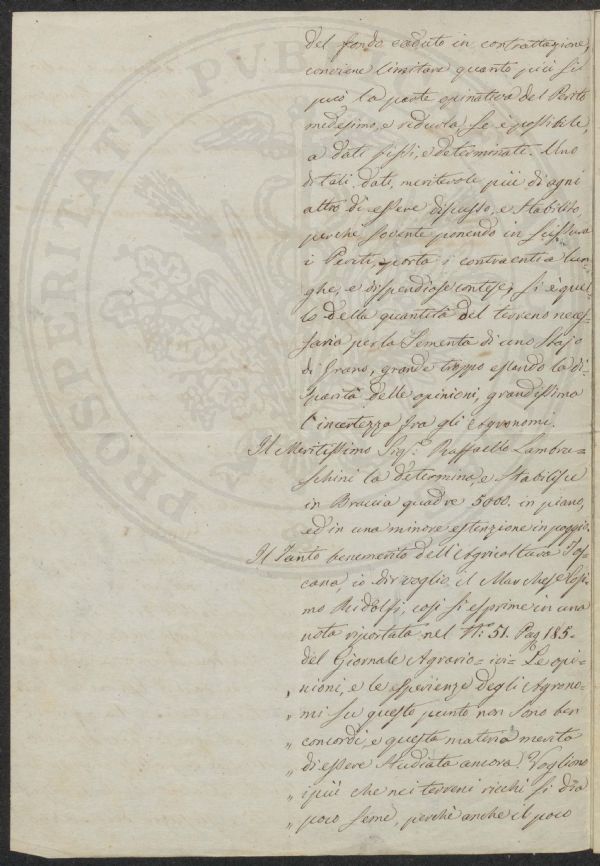 del fondo caduto in contrattazione,
conviene limitare quanto più si
può la parte opinativa del Perito
medesimo, e ridurla, se è possibile,
a dati fissi, e determinati. Uno
di tali dati, meritevole più di ogni
altro di essere discusso, e stabilito,
perchè sovente ponendo in scissura
i Periti, porta i contraenti a lun=
ghe, e dispendiose contese, si è quel=
lo della quantità del terreno neces=
sario per la Sementa di uno Stajo
di Grano, grande troppo essendo la di=
sparità delle opinioni, grandissima
l'incertezza fra gli Agronomi.
Il Meritissimo Sig.r Raffaello Lambru=
schini la determina, e stabilisce
in Braccia quadre 5000. in piano,
ed in una minore estenzione in poggio.
Il Tanto benemerito dell'Agricoltura Tos=
cana, io dir voglio il Marchese Cosi=
mo Ridolfi, così si esprime in una
nota riportata nel N.o 51. Pag 185.
del Giornale Agrario = ivi = Le opi=
„ nioni, e le esperienze degli Agrono=
„ mi su questo punto non sono ben
„ concordi, e questa materia merita
„ di essere studiata ancora. Vogliono
„ i più che nei terreni ricchi si dia
„ poco seme, perchè anche il poco
PROSPERITATI PVB